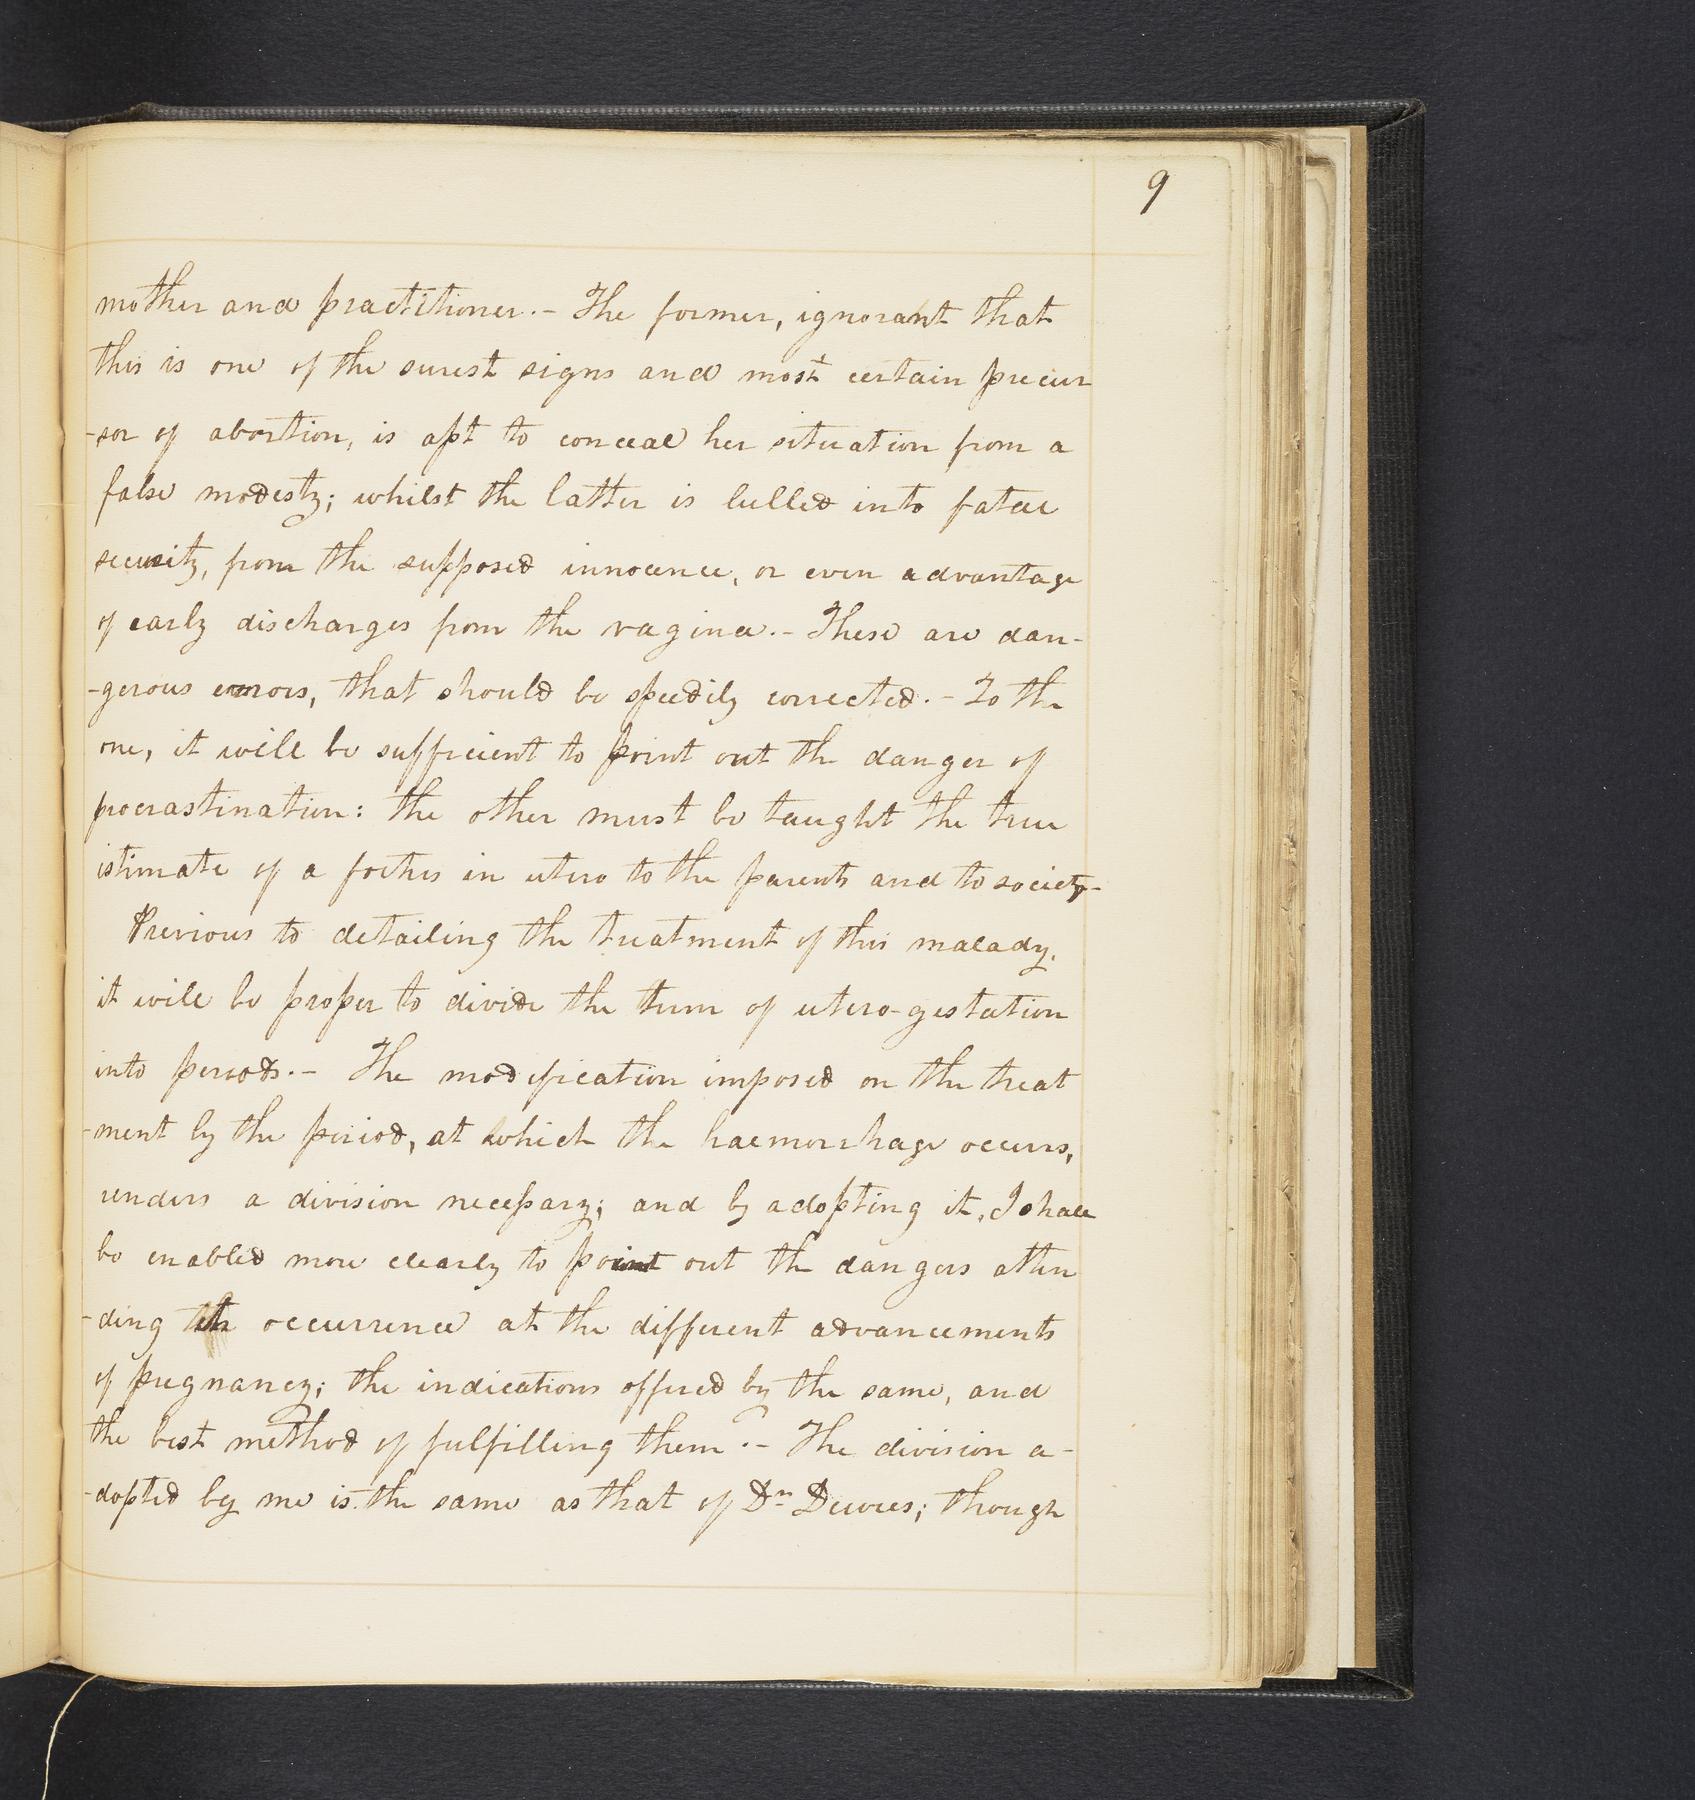 9
mother and practitioner.- The former, ignorant that
this is one of the surest signs and most certain precur
-sor of abortion, is apt to conceal her situation from a
false modesty; whilst the latter is lulled into fatal
security, from the supposed innocence, or even advantage
of early discharges from the vagina.- These are dan-
-gerous errors, that should be speedily corrected.- To the
one, it will be sufficient to point out the danger of
procrastination: the other must be taught the true
estimate of a foetus in utero to the parents and to society-
Previous to detailing the treatment of this malady,
it will be proper to divide the term of utero-gestation
into periods.- The modification imposed on the treat
-ment by the period, at which the haemorrhage occurs,
renders a division necessary; and by adopting it, I shall
be enabled more clearly to point out the dangers atten
-ding its occurrence at the different advancements
of pregnancy; the indications offered by the same, and
the best method of fulfilling them.- The division a-
-dopted by me is the same as that of Dr. Dewees; though